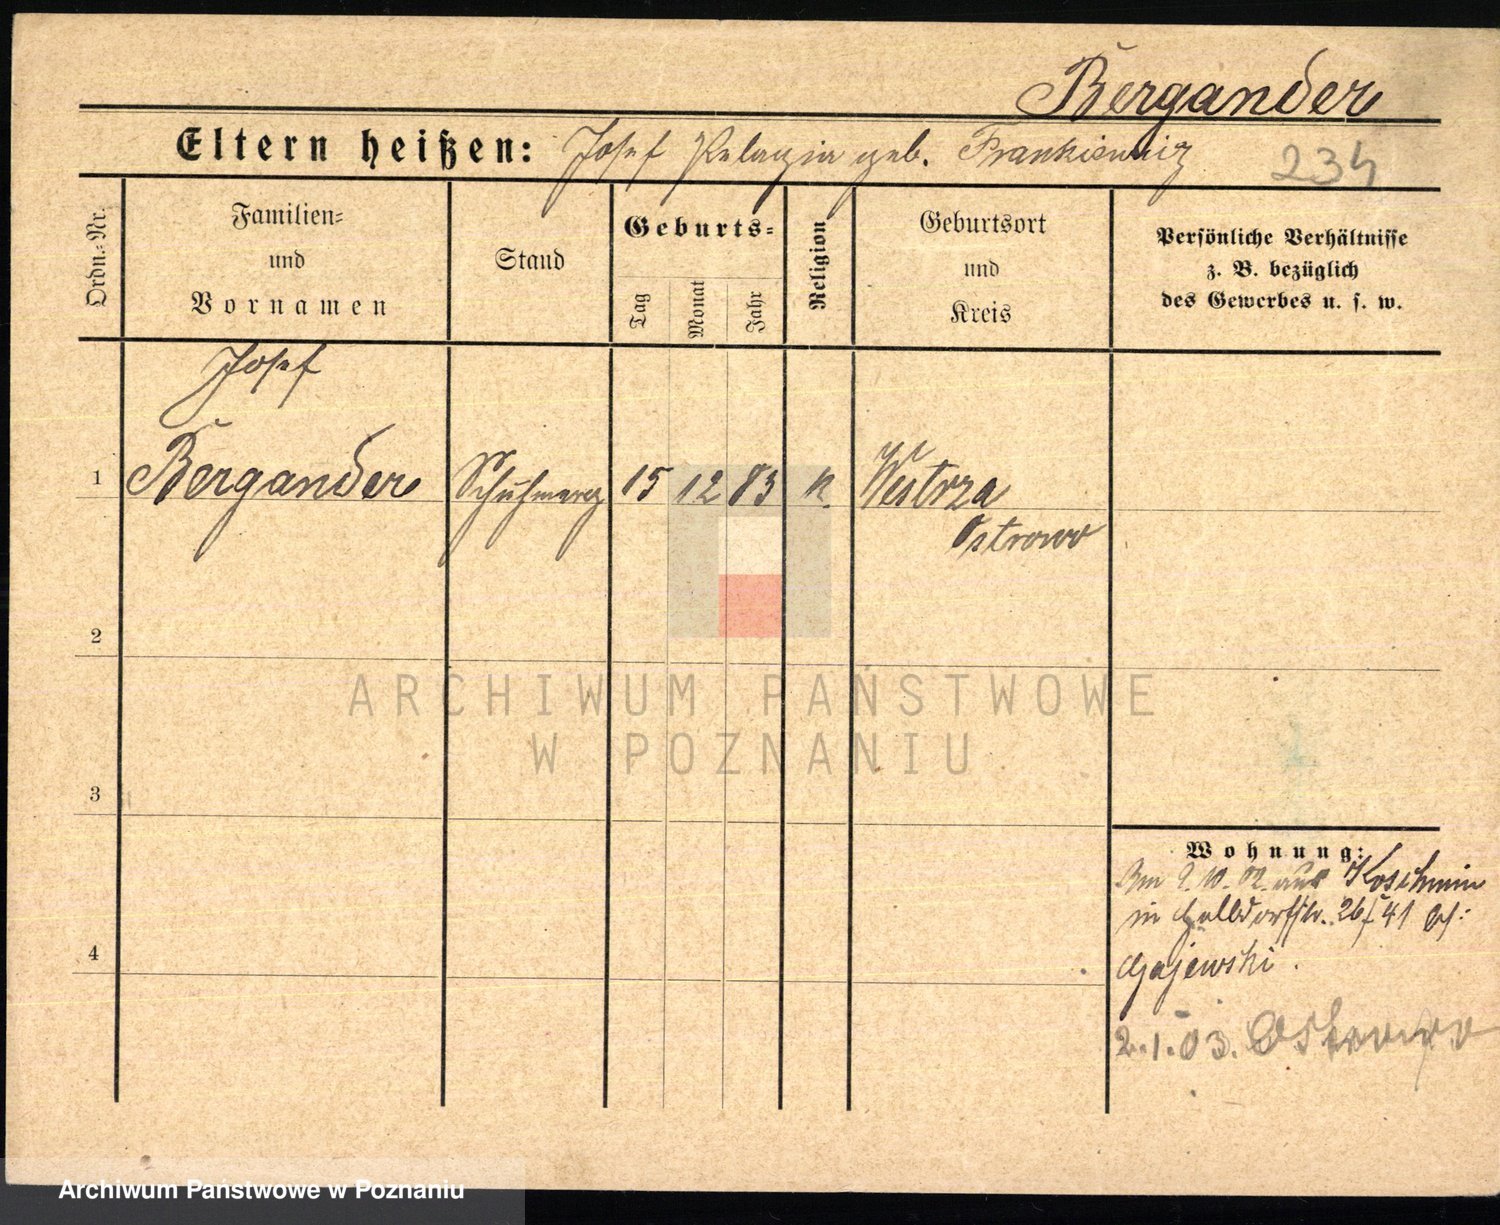 Bergander
Eltern heißen: Josef Pelagia geb. Frankiewicz
234
Ordn.-Nr.
Familien-
und
Vornamen
Stand
Geburts-
Tag
Monat
Jahr
Religion
Geburtsort
und
Kreis
Persönliche Verhältnisse
z. B. bezüglich
des Gewerbes u. s. w.
Josef
1 Bergander 15 12 83 K. Westrza
Ostrowo
2
ARCHIWUM PAŃSTWOWE
W POZNANIU
3
Wohnung:
Am 2.10.02. aus Koschmin
in 26/41 bei:
4
Gajewski.
2.1.03. Ostrowo
Archiwum Państwowe w Poznaniu